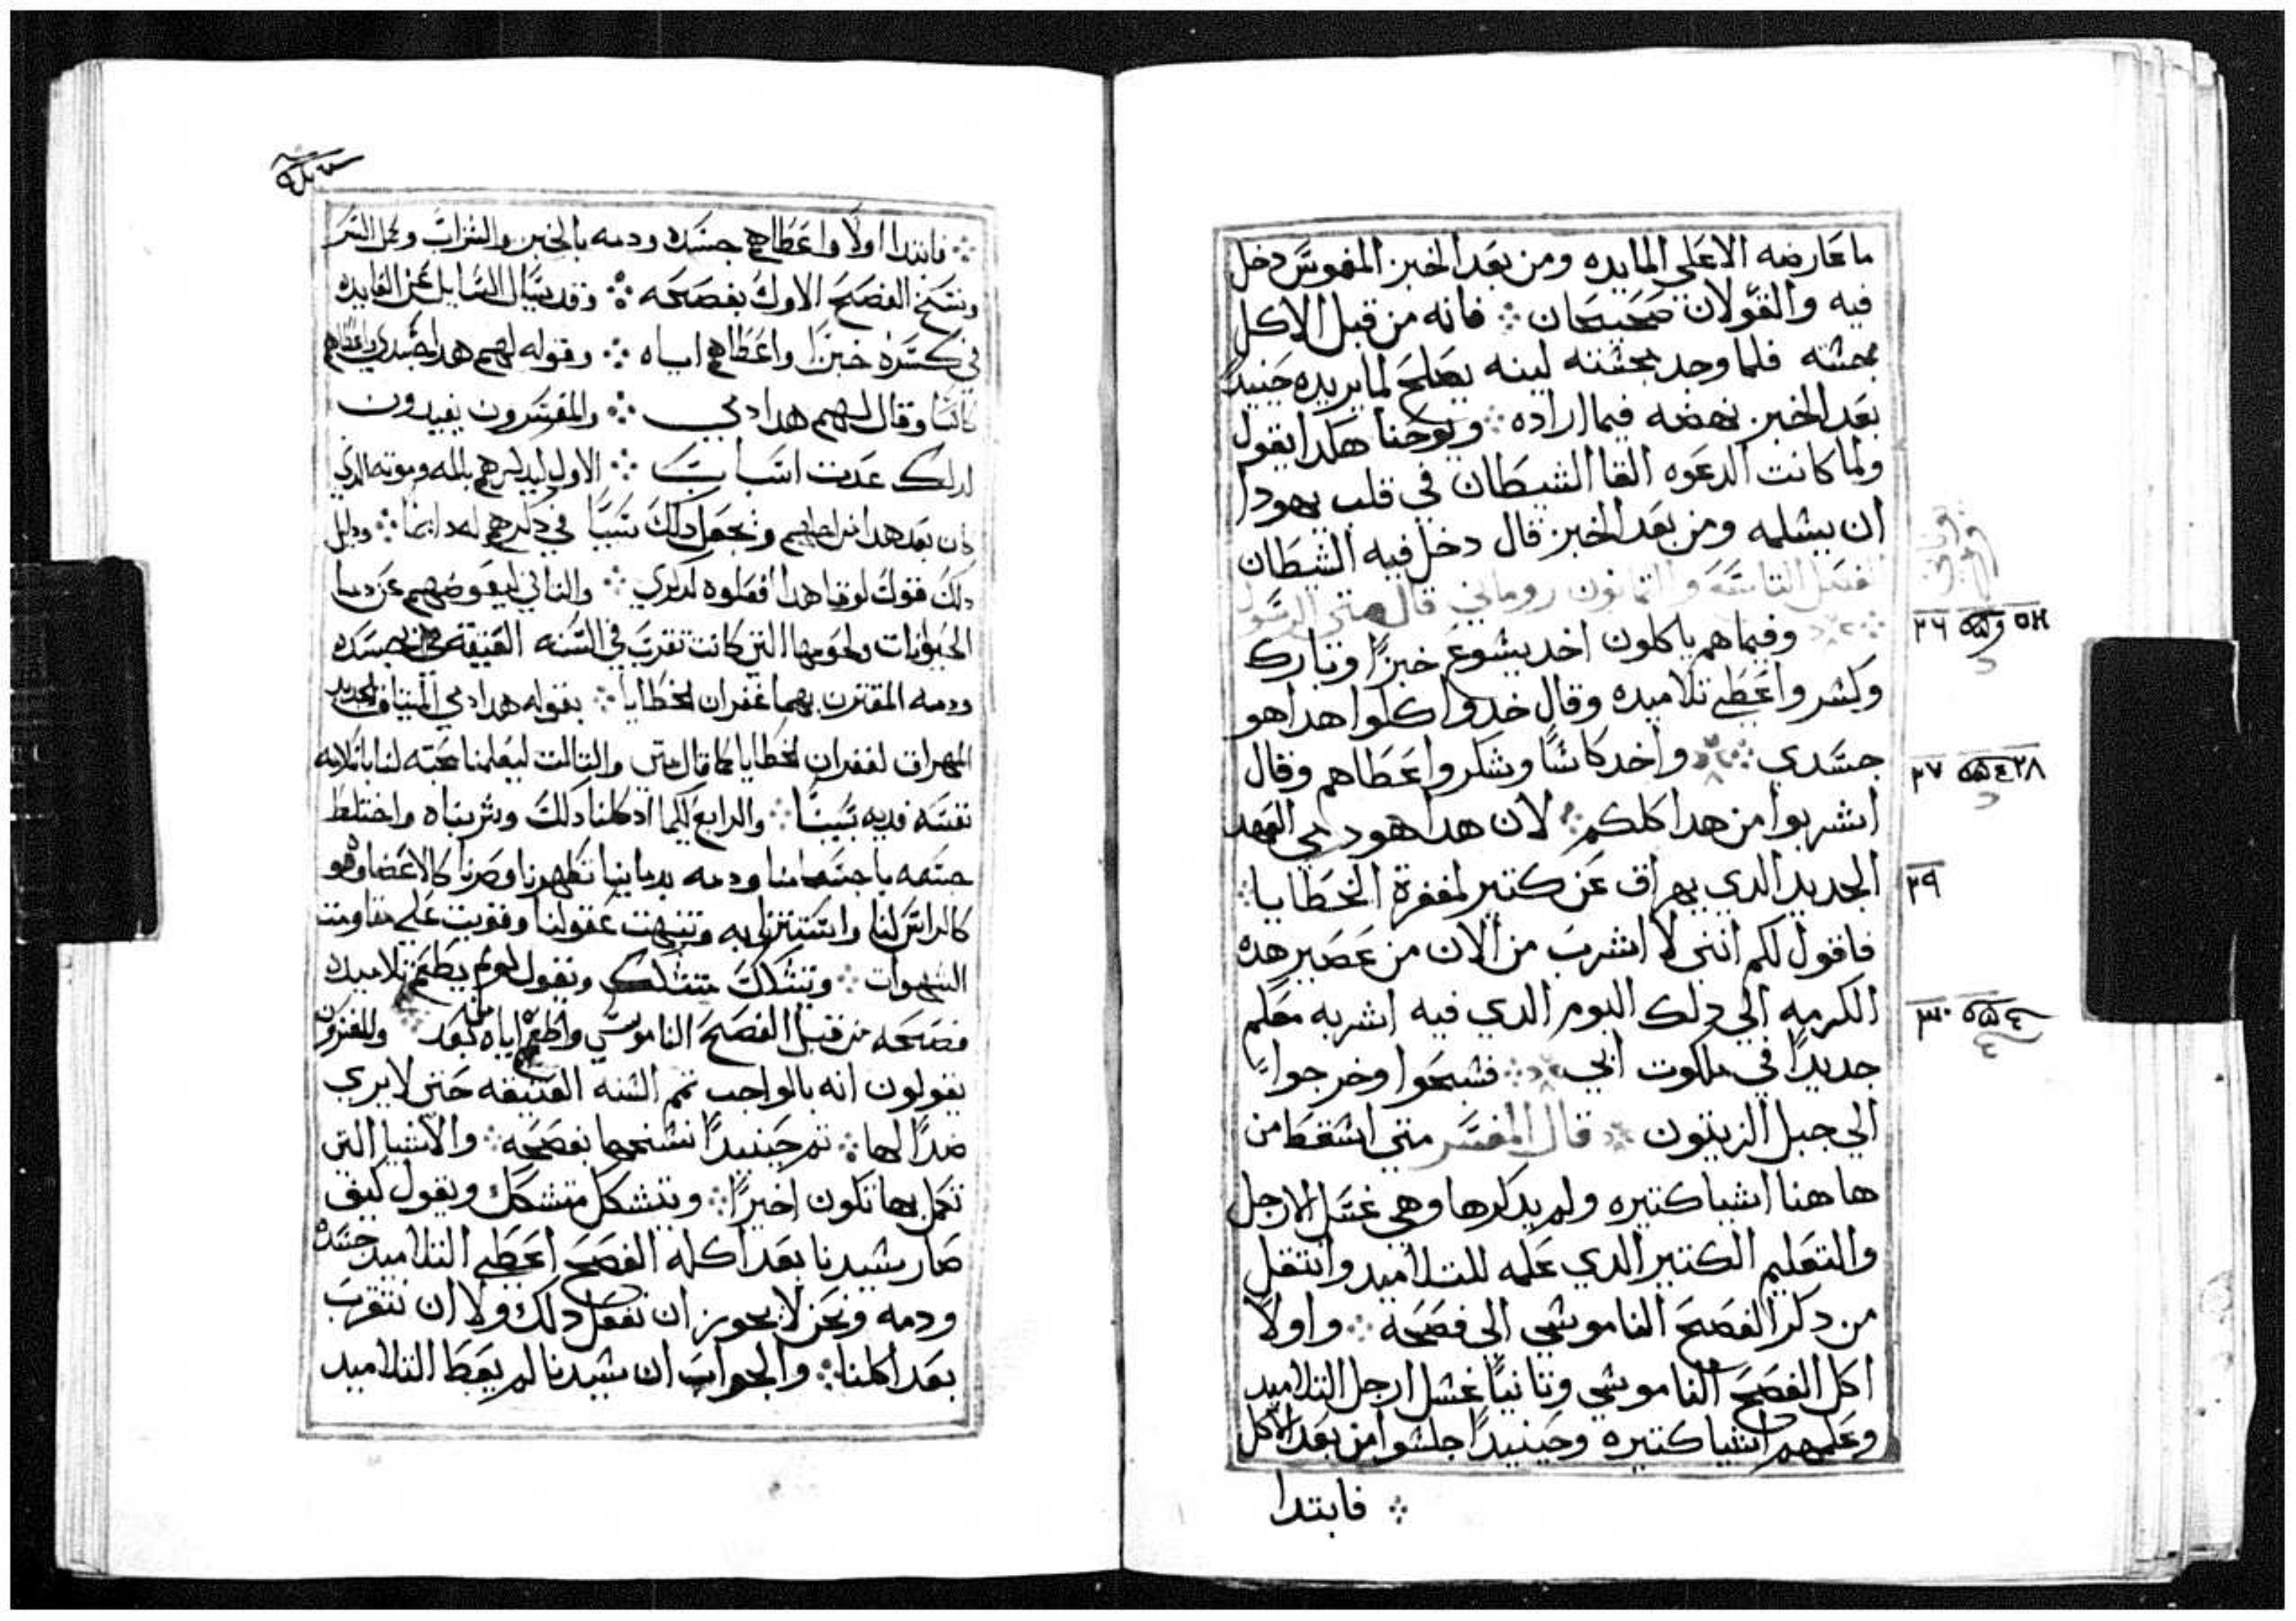 ما عارضه الا علي المايده ومن بعد الخبز المغموس دخل
فيه والقولان صحيحان ܀ فانه من قبل الاكل
بحشه فلما وجد بحشته لينه يصلح لما يريده حينيدا
بعد الخبز نهضه فيما اراده ܀ ويوحنا هكدا يقول
ولما كانت الدعوه القا الشيطان في قلب يهودا
ان يسلمه ومن بعد الخبز قال دخل فيه الشيطان
الفصل التاسعه والتمانون روماني قال متى الرسول
وفيما هم ياكلون اخد يشوع خبزًا وبارك
وكسر واعطي تلاميده وقال خدوا كلوا هدا هو
جسدي ܀ واخد كاسًا وشكر واعطاهم وقال
اشربوا من هدا كلكم ܀ لان هدا هو دمي العهد
الجديد الدي يهراق عن كتير لمغفرة الخطايا ܀
فاقول لكم انني لا اشرب من الان من عصير هده
الكرمه الي دلك اليوم الدي فيه اشربه معكم
جديدًا في ملكوت ابي ܀ فسبحوا وخرجوا
الي جبل الزيتون ܀ قال المفسر متي اسقط من
هاهنا اشيا كتيره ولم يدكرها وهي غسل الارجل
والتعليم الكتير الدي علمه للتلاميد وانتقل
من دكر الفصح الناموسي الي فصحه ܀ واولًا
اكل الفصح الناموسي وتانيًا غسل ارجل التلاميد
وعلمهم اشيا كتيره وحينيدًا جلسوا من بعد الاكل
܀ فابتدا
٢٦
٢٧
٢٩
٣٠
܀ فابتدا اولًا واعطاهم جسده ودمه بالخبز والشراب وكمل السر
ونسخ الفصح الاول بفصحه ܀ وقد يسال السايل عن الفايده
في كسره خبزًا واعطاهم اياه ܀ وقوله لهم هدا جسدي واعطاهم
كاسًا وقال لهم هدا دمي ܀ والمفسرون يفيدون
لدلك عدت اسباب ܀ الاول ليدكرهم بالمه وموته الدي
كان بعد هدا ونجعل دلك سببًا في دكرهم له دايما ܀ ودليل
دلك قول لوقا هدا افعلوه لدكري ܀ والتاني ليعوضهم عن دما
الحيوانات ولحومها التي كانت تقرب في السنه العتيقه بجسده
ودمه المقترن بهما غفران الخطايا ܀ بقوله هدا دمي الميتاق الجديد
المهراق لغفران الخطايا كما قال متي والتالت ليعلمنا محبته لنا باتلافه
نفسه فديه بسببنا ܀ والرابع لكيما ادا كلنا دلك وشربناه واختلط
جسمه باجسامنا ودمه بدماينا تطهرنا وصرنا كالاعضا وهو
كالراس لنا واستنرنا به وتنبهت عقولنا وقويت علي مقاومت
الشهوات ܀ ويتشكك متشكك ويقول لم لم يطعم تلاميده
فصحه من قبل الفصح الناموسي واطعم اياه من بعد والمفسرون
يقولون انه بالواجب تمم السنه العتيقه حتي لا يري
ضدًا لها ܀ تم حينيدًا نسخها بفصحه ܀ والاشيا التي
تكمل بها تكون اخيرًا ܀ ويتشكك متشكك ويقول كيف
صار سيدنا بعد اكله الفصح اعطي التلاميد جسده
ودمه ونحن لا يجوز ان نفعل دلك ولا ان نتقرب
بعد اكلنا ܀ والجواب ان سيدنا لم يعط التلاميد